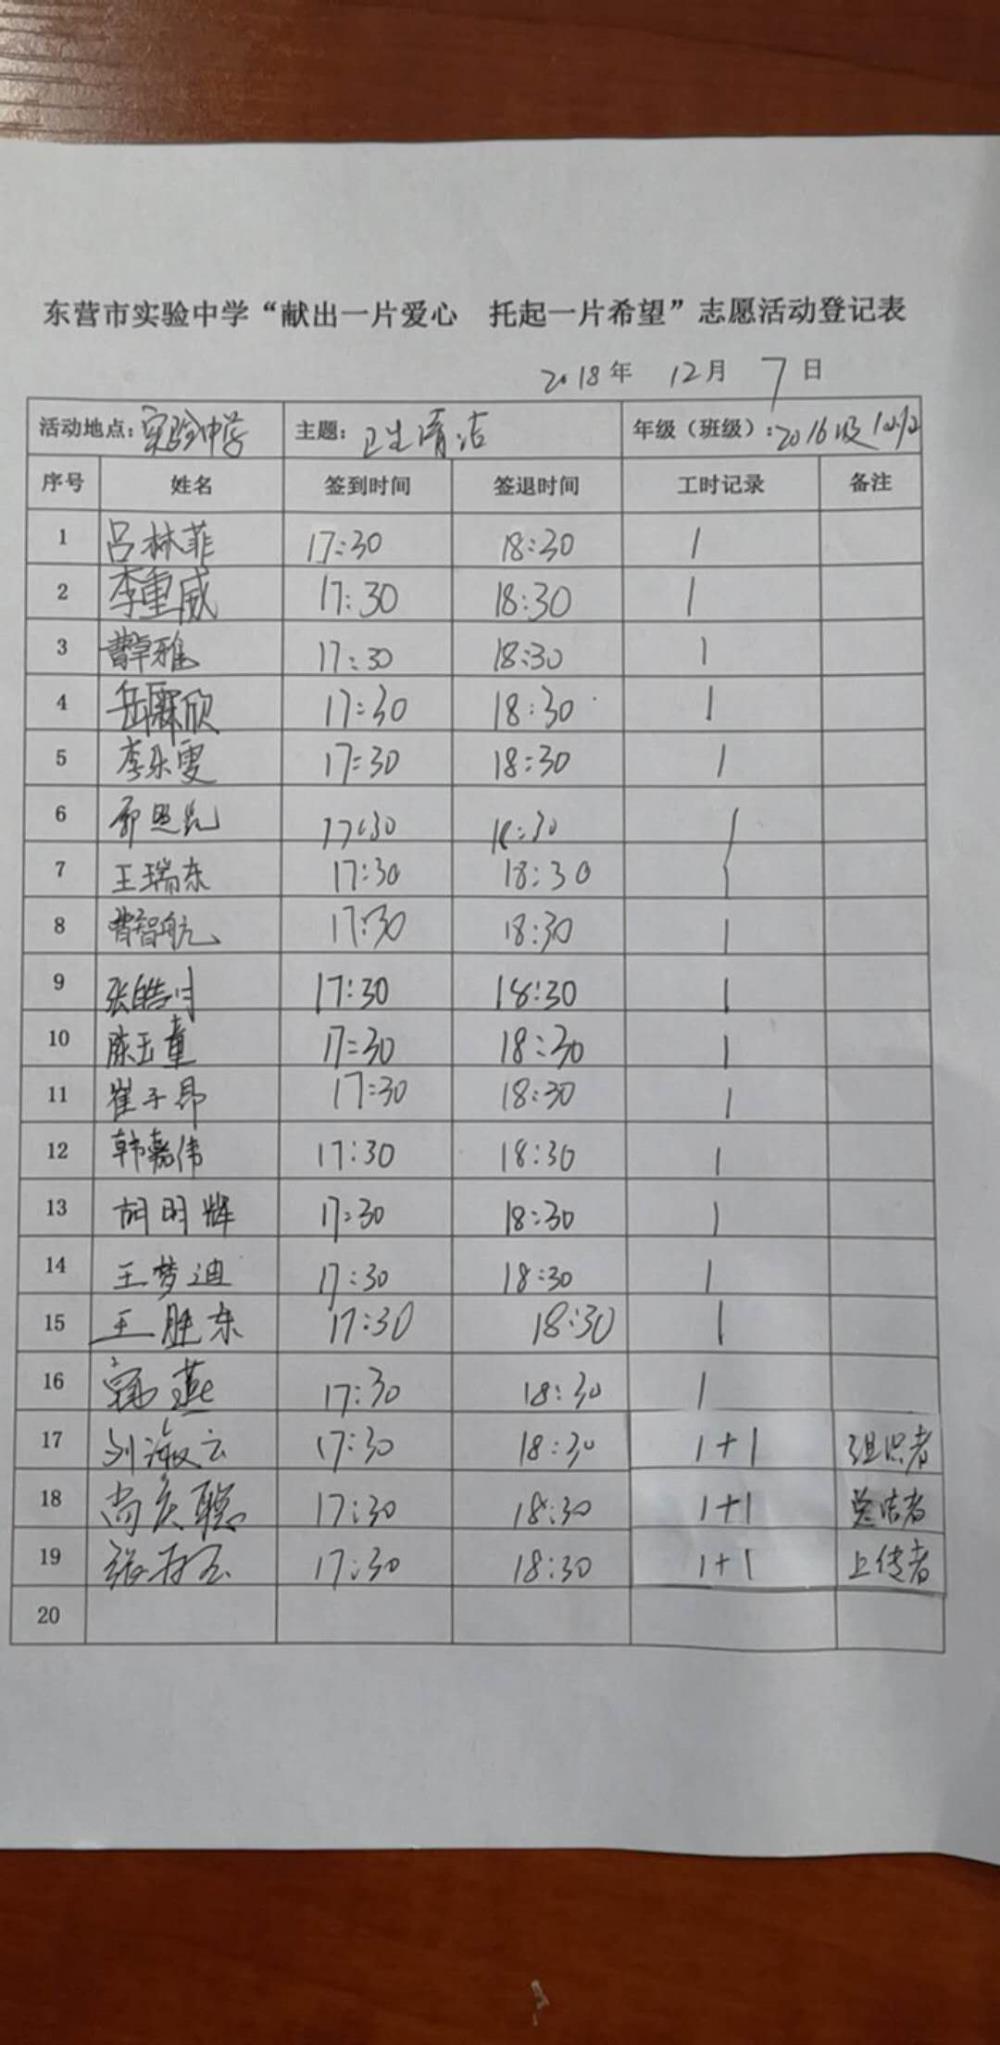 东营市实验中学“献出一片爱心 托起一片希望”志愿活动登记表
2018年 12月 7日
活动地点：实验中学 主题：卫生清洁 年级（班级）：2016级
序号 姓名 签到时间 签退时间 工时记录 备注
1 吕林菲 17:30 18:30 1
2 李重威 17:30 18:30 1
3 曹卓雅 17:30 18:30 1
4 岳霖欣 17:30 18:30 1
5 李乐雯 17:30 18:30 1
6 17:30 18:30 1
7 王瑞东 17:30 18:30 1
8 曹智航 17:30 18:30 1
9 17:30 18:30 1
10 陈玉童 17:30 18:30 1
11 崔子昂 17:30 18:30 1
12 韩嘉伟 17:30 18:30 1
13 胡明辉 17:30 18:30 1
14 王梦迪 17:30 18:30 1
15 王胜东 17:30 18:30 1
16 17:30 18:30 1
17 刘淑云 17:30 18:30 1+1 组织者
18 尚庆聪 17:30 18:30 1+1 总结者
19 17:30 18:30 1+1 上传者
20